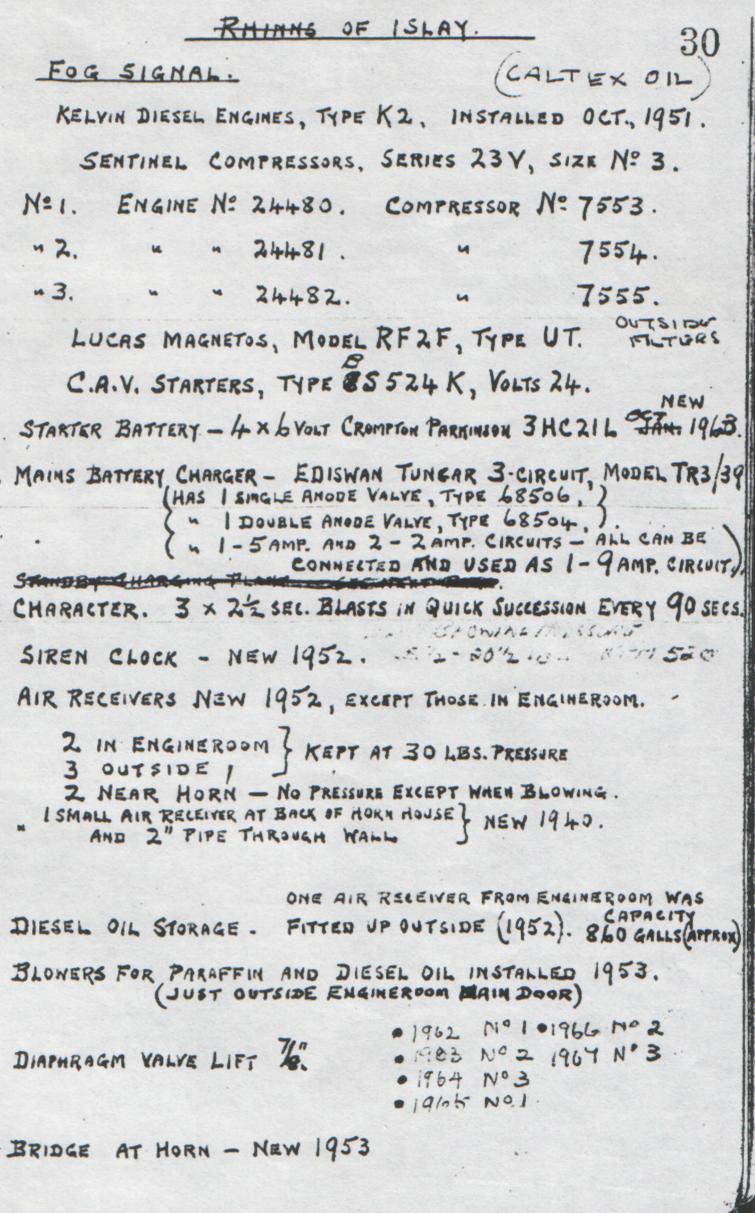 RHINNS OF ISLAY.
30
FOG SIGNAL.
(CALTEX OIL)
KELVIN DIESEL ENGINES, TYPE K2, INSTALLED OCT., 1951.
SENTINEL COMPRESSORS, SERIES 23V, SIZE Nº 3.
Nº 1. ENGINE Nº 24480. COMPRESSOR Nº 7553.
" 2. " " 24481. " 7554.
" 3. " " 24482. " 7555.
LUCAS MAGNETOS, MODEL RF2F, TYPE UT.
OUTSIDE
FILTERS
C.A.V. STARTERS, TYPE BS524K, VOLTS 24.
NEW
STARTER BATTERY – 4 x 6 VOLT CROMPTON PARKINSON 3HC21L OCT JAN. 1963.
MAINS BATTERY CHARGER – EDISWAN TUNGAR 3-CIRCUIT, MODEL TR3/39
(HAS 1 SINGLE ANODE VALVE, TYPE 68506,)
( " 1 DOUBLE ANODE VALVE, TYPE 68504,).
( " 1-5 AMP. AND 2-2 AMP. CIRCUITS – ALL CAN BE
CONNECTED AND USED AS 1-9 AMP. CIRCUIT.)
STANDBY CHARGING PLANT
CHARACTER. 3 x 2½ SEC. BLASTS IN QUICK SUCCESSION EVERY 90 SECS.
BLOWING PRESSURE
SIREN CLOCK – NEW 1952.
AIR RECEIVERS NEW 1952, EXCEPT THOSE IN ENGINEROOM.
2 IN ENGINEROOM } KEPT AT 30 LBS. PRESSURE
3 OUTSIDE
2 NEAR HORN – NO PRESSURE EXCEPT WHEN BLOWING.
" 1 SMALL AIR RECEIVER AT BACK OF HORN HOUSE } NEW 1940.
AND 2" PIPE THROUGH WALL
ONE AIR RECEIVER FROM ENGINEROOM WAS
DIESEL OIL STORAGE. FITTED UP OUTSIDE (1952). CAPACITY 860 GALLS (APPROX)
BLOWERS FOR PARAFFIN AND DIESEL OIL INSTALLED 1953.
(JUST OUTSIDE ENGINEROOM MAIN DOOR)
• 1962 Nº 1 • 1966 Nº 2
DIAPHRAGM VALVE LIFT
• 1963 Nº 2 1967 Nº 3
• 1964 Nº 3
• 1965 Nº 1
BRIDGE AT HORN – NEW 1953